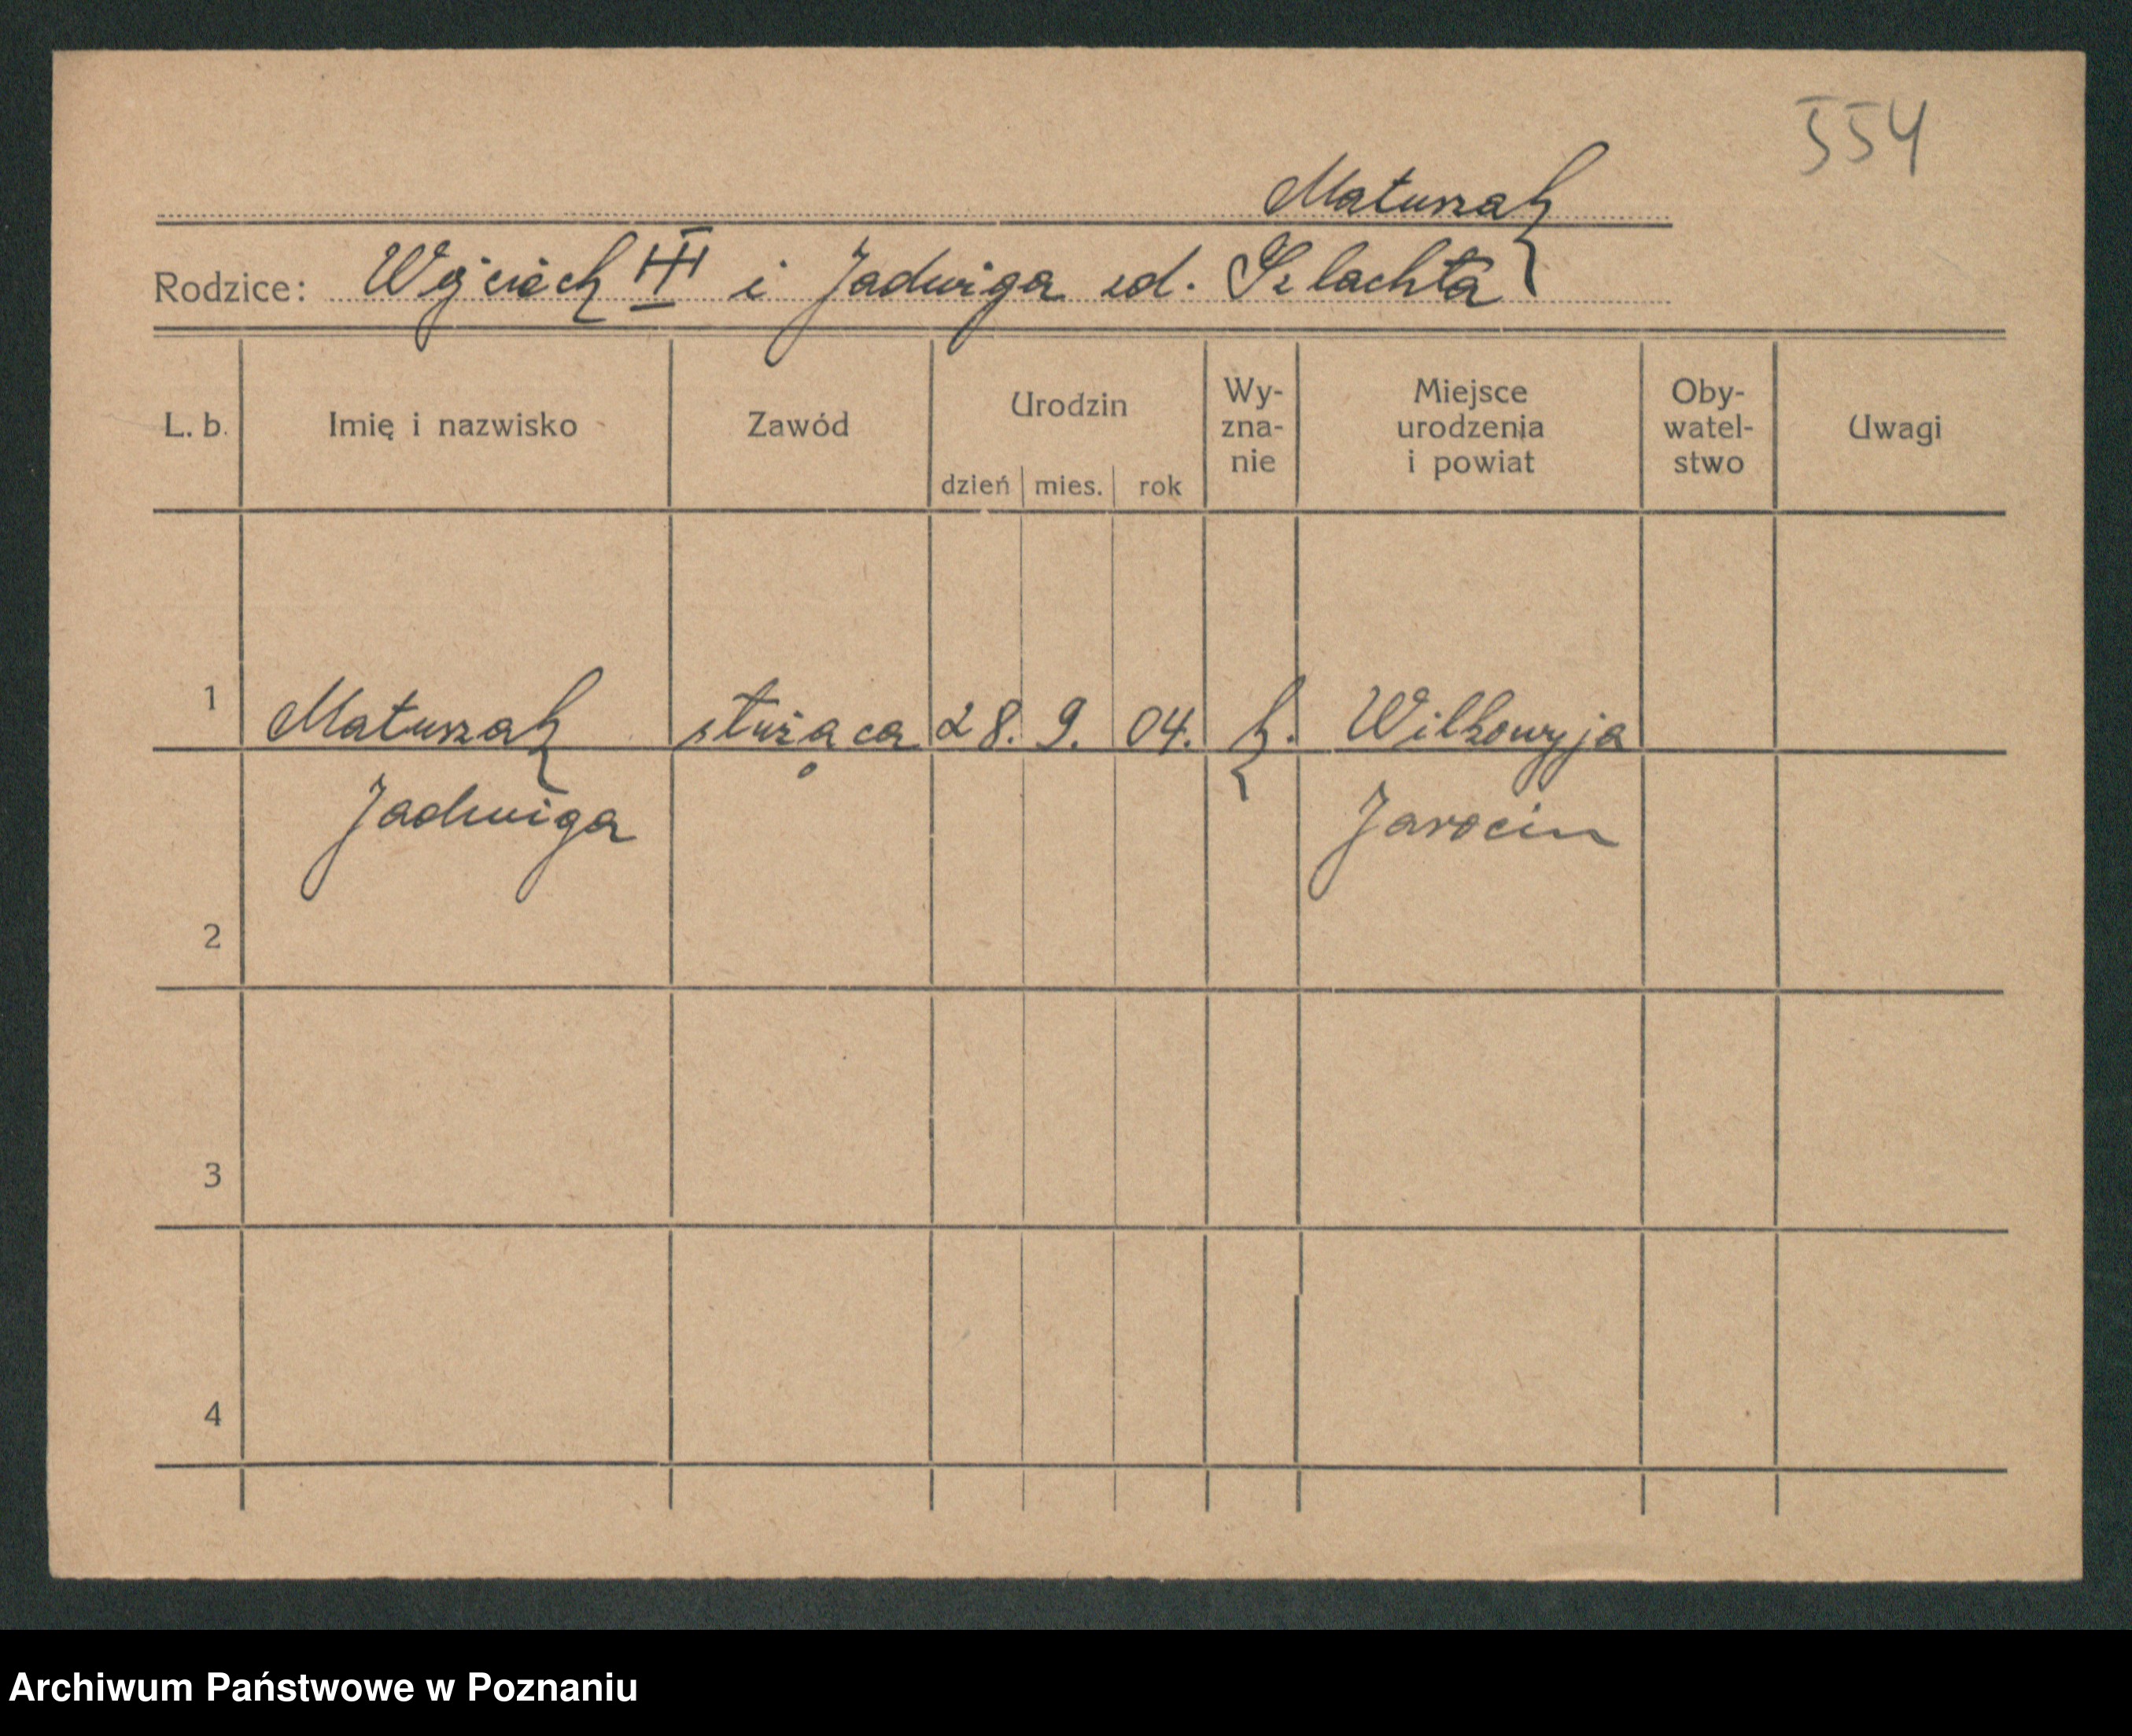 554
Matuszak
Rodzice: Wojciech III i Jadwiga zd. Szlachta
L. b. Imię i nazwisko Zawód Urodzin dzień mies. rok Wy-zna-nie Miejsce urodzenia i powiat Oby-watel-stwo Uwagi
1 Matuszak służąca 28. 9. 04. k. Wilkowyja
Jadwiga Jarocin
2
3
4
Archiwum Państwowe w Poznaniu